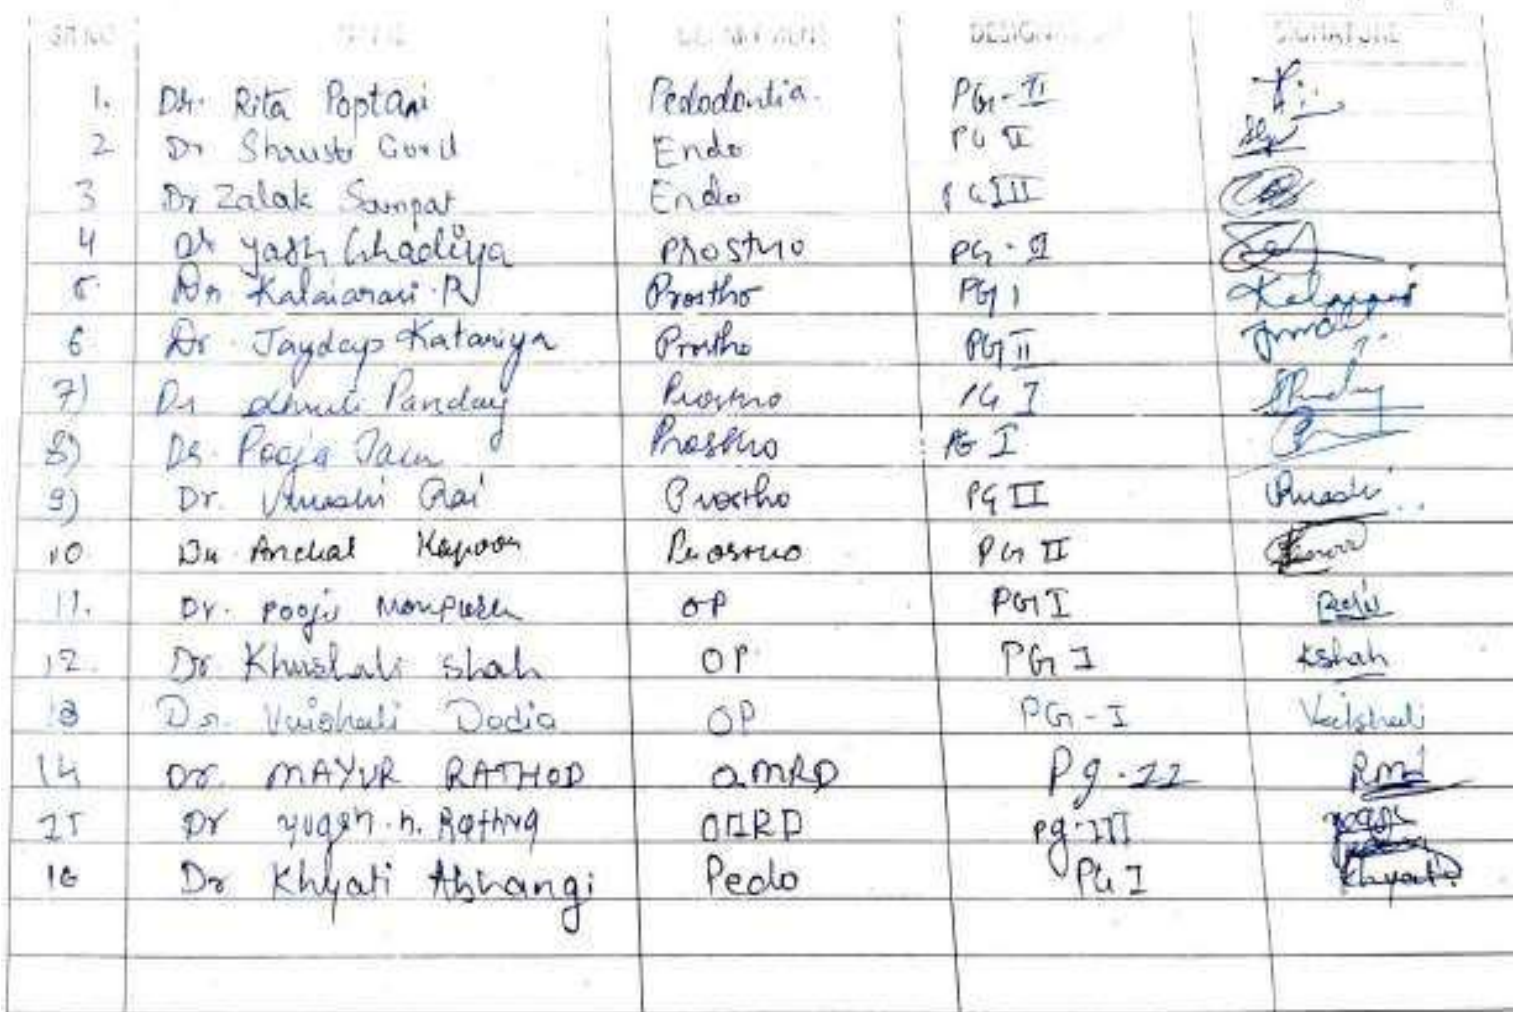 SR NO NAME DESIGN SIGNATURE
1. Dr. Rita Poptani Pedodontia. PG-II
2 Dr Shrusti Endo PG II
3 Dr Zalak Sampat Endo PG III
4 Dr Yash Ghadiya Prostho PG-II
5. Dr. Kalaiarasi.R Prostho PG I
6 Dr. Jaydeep Katariya Prostho PG II
7) Dr Panday Prostho PG I
8) Dr. Pooja Jain Prostho PG I
9) Dr. Urvashi Rai Prostho PG II
10 Dr. Anchal Kapoor Prostho PG II
11. Dr. Pooja OP PG I
12. Dr Khushali Shah OP PG I KShah
13 Dr. Vaishali Dodia OP PG-I Vaishali
14 Dr. MAYUR RATHOD OMRD Pg-22 RMd
15 Dr yugsh.h. Rathva OMRD Pg-III
16 Dr Khyati Abhangi Pedo PG I Khyati